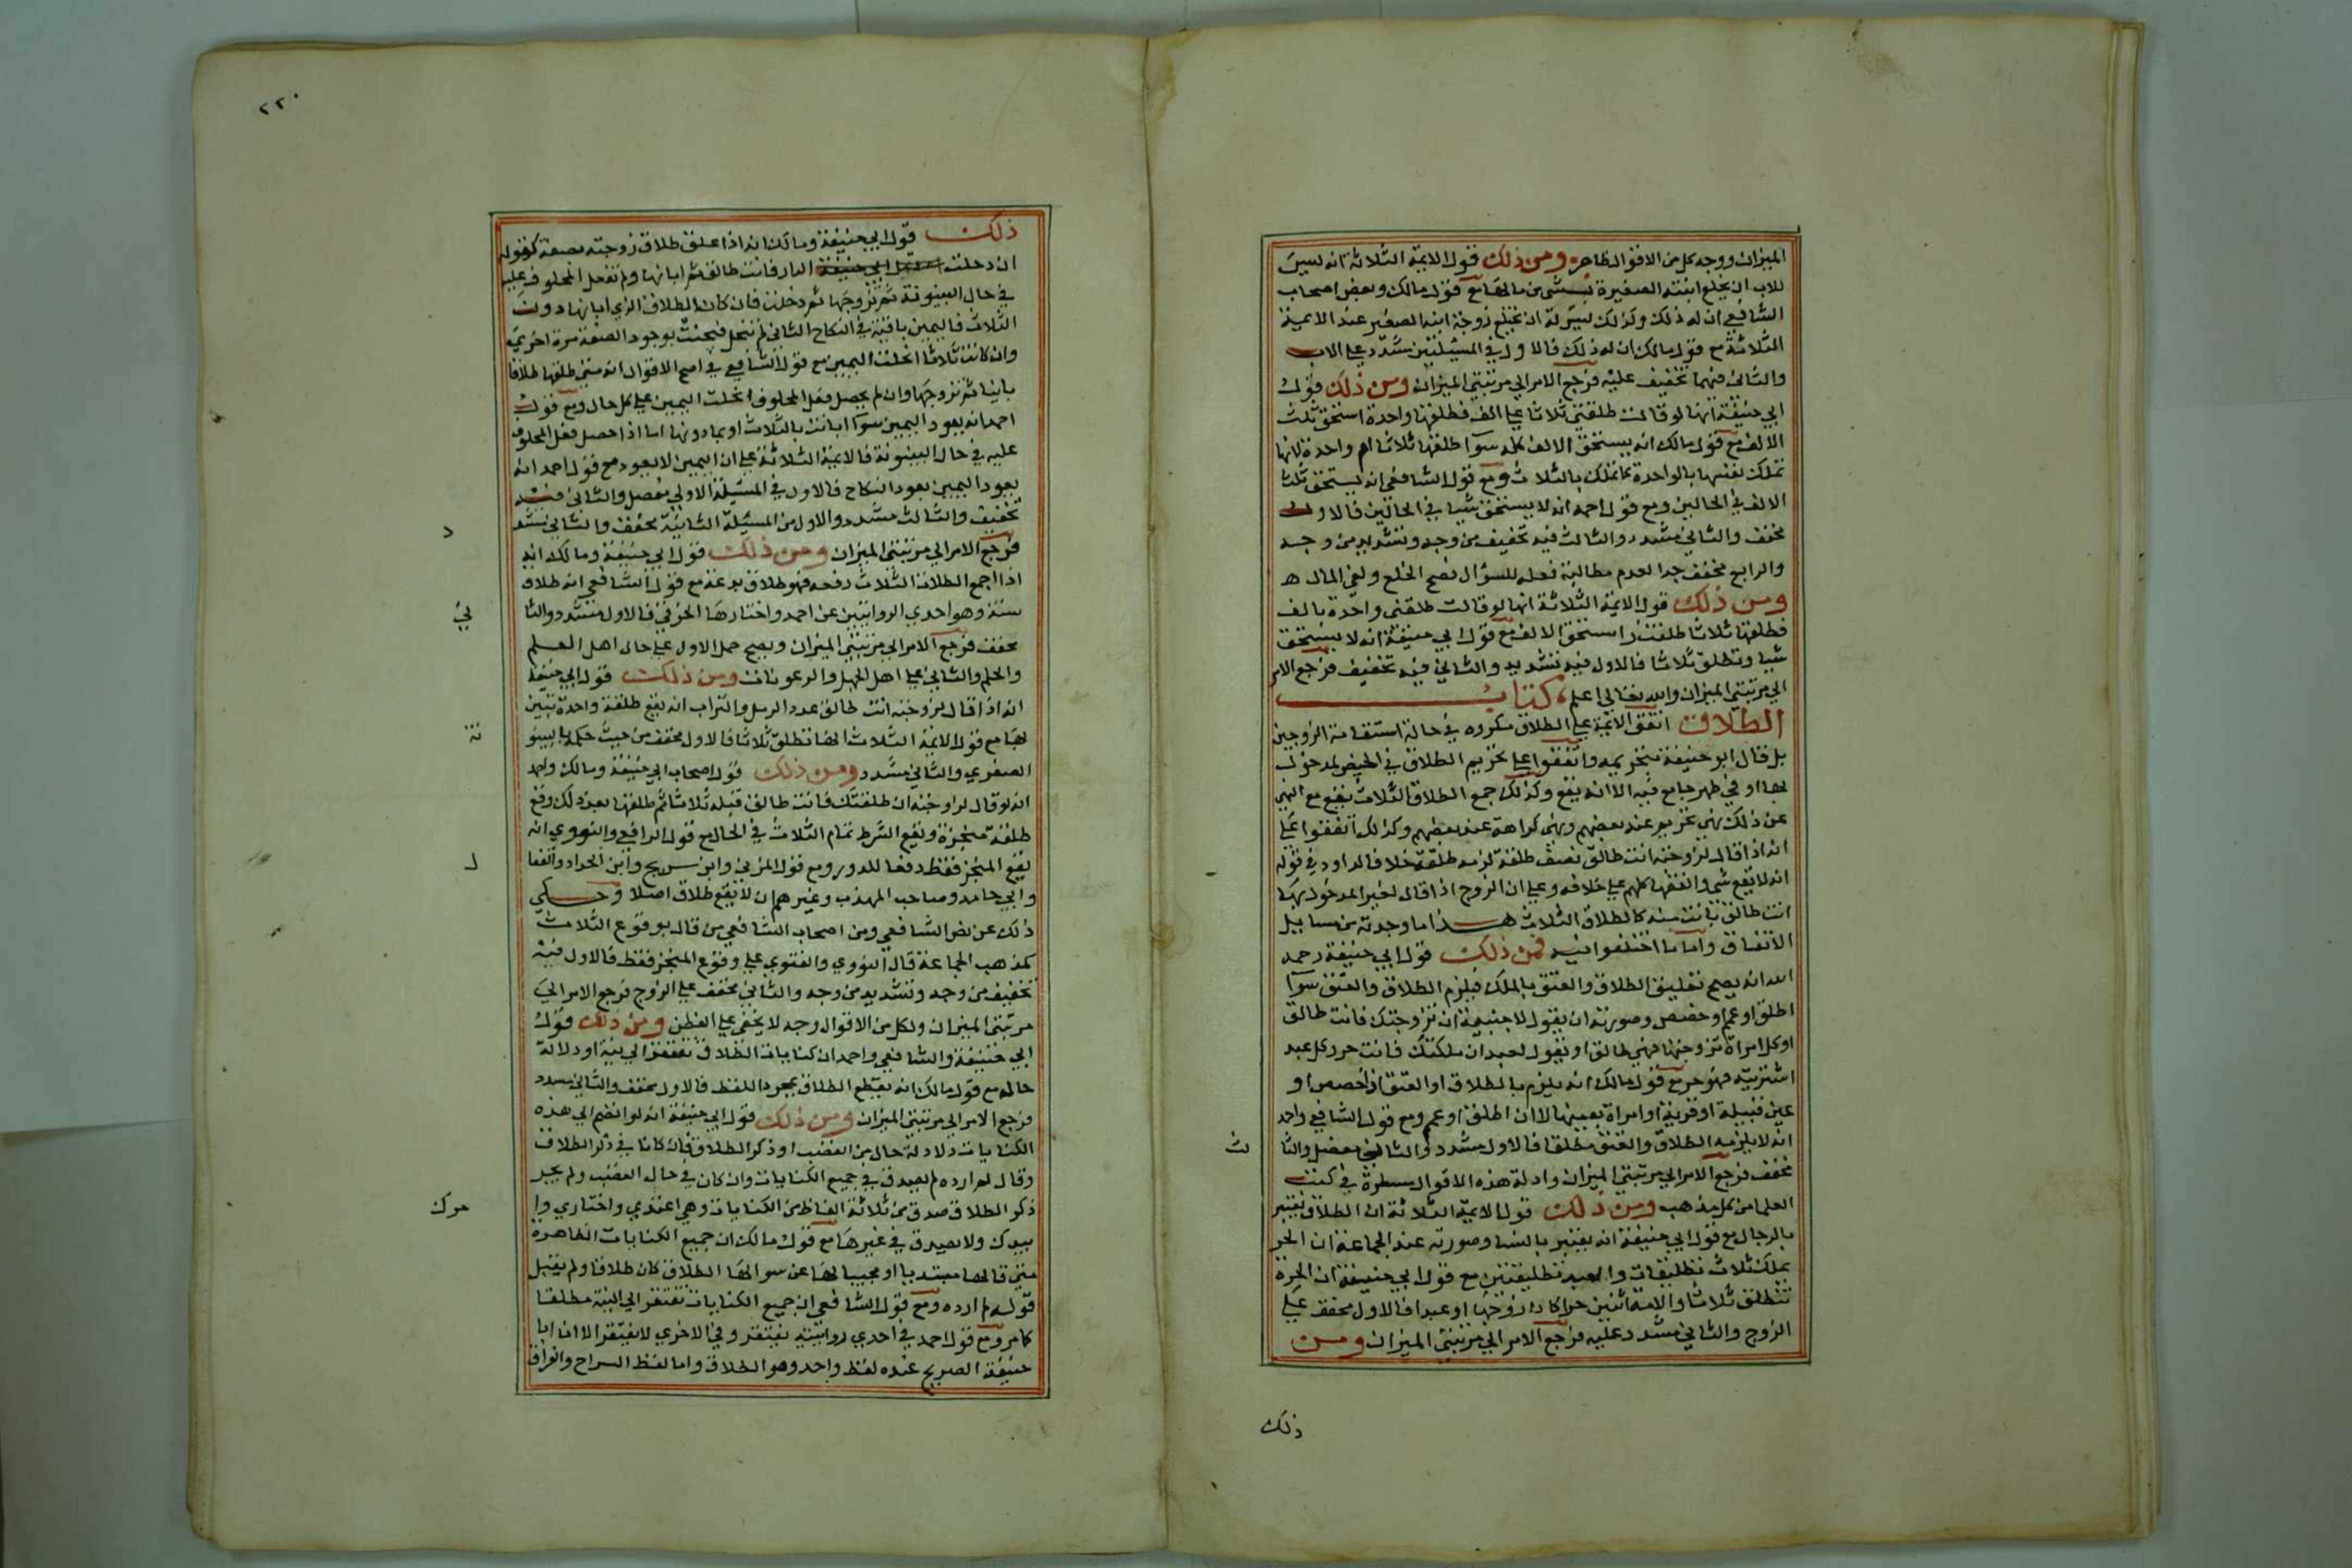 الميزان ووجه كل من الاقوال ظاهر ومن ذلك قول الايمة الثلاثة انه ليس
للاب ان يخلع ابنته الصغيرة بشى من مالها مع قول مالك وبعض اصحاب
الشافعي ان له ذلك وكذلك ليس له ان يخلع زوجة ابنه الصغير عند الايمة
الثلاثة مع قول مالك ان له ذلك فالاول في المسئلتين مشدد على الاب
والثاني فيهما تخفيف عليه فرجع الامر الي مرتبتي الميزان ومن ذلك قول
ابي حنيفة انها لو قالت طلقني ثلاثا على الف فطلقها واحدة استحق ثلث
الالف مع قول مالك انه يستحق الالف كله سوا طلقها ثلاثا ام واحدة لانها
تملك نفسها بالواحدة كما تملك بالثلاث ومع قول الشافعي انه يستحق ثلث
الالف في الحالين ومع قول احمد انه لا يستحق شيا في الحالين فالاول
مخفف والثاني مشدد والثالث فيه تخفيف من وجه وتشديد من وجه
والرابع مخفف جدا لعدم مطالبة فعله للسؤال فصح الخلع ولغى المال ه
ومن ذلك قول الايمة الثلاثة انها لو قالت طلقني واحدة بالف
فطلقها ثلاثا طلقت واستحق الالف مع قول ابي حنيفة انه لا يستحق
شيا وتطلق ثلاثا فالاول فيه تشديد والثاني فيه تخفيف فرجع الامر
الي مرتبتي الميزان والله تعالي اعلم كتاب
الطلاق اتفق الايمة على الطلاق مكروه في حالة استقامة الزوجين
بل قال ابو حنيفة بتحريمه واتفقوا على تحريم الطلاق في الحيض لمدخول
بها او في طهر جامع فيه الا انه يقع وكذلك جمع الطلاق الثلاث يقع مع النهي
عن ذلك نهي تحريم عند بعضهم ونهي كراهة عند بعضهم وكذلك اتفقوا على
انه اذا قال لزوجته انت طالق نصف طلقة لزمه طلقة خلافا لداود في قوله
انه لا يقع شي والفقها كلهم على خلافه وعلى ان الزوج اذا قال لغير المدخول بها
انت طالق بانت منه كالطلاق الثلاث هذا ما وجدته من مسايل
الاتفاق واما ما اختلفوا فيه فمن ذلك قول ابي حنيفة رحمه
الله انه يصح تعليق الطلاق والعتق بالملك فيلزم الطلاق والعتق سوآ
اطلق او عم او خصص وصورته ان يقول لاجنبية ان تزوجتك فانت طالق
او كل امراة تزوجتها فهي طالق او يقول لعبد ان ملكتك فانت حر وكل عبد
اشتريته فهو حر مع قول مالك انه يلزم بالطلاق او العتق اذا خصص او
عين قبيلة او قرية او امراة بعينها لا ان اطلق او عم ومع قول الشافعي واحمد
انه لا يلزمه الطلاق والعتق مطلقا فالاول مشدد والثاني مفصل والثا
لث
مخفف فرجع الامر الي مرتبتي الميزان وادلة هذه الاقوال مسطرة في كتب
العلما من كل مذهب ومن ذلك قول الايمة الثلاثة ان الطلاق يعتبر
بالرجال مع قول ابي حنيفة انه يعتبر بالنسا وصورته عند الجماعة ان الحر
يملك ثلاث تطليقات والعبد تطليقتين مع قول ابي حنيفة ان الحرة
تطلق ثلاثا والامة اثنين حرا كان زوجها او عبدا فالاول مخفف على
الزوج والثاني مشدد عليه فرجع الامر الي مرتبتي الميزان ومن
ذلك
٢٢٠
ذلك قول ابي حنيفة ومالك انه اذا علق طلاق زوجته بصفة كقوله
ان دخلت الدار فانت طالق ثم ابانها ولم تفعل المحلوف عليه
في حال البينونة ثم تزوجها ثم دخلت فان كان الطلاق الذي ابانها دون
الثلاث فاليمين باقية في النكاح الثاني لم تنحل فيحنث بوجود الصفة مرة اخري
وان كانت ثلاثا انحلت اليمين مع قول الشافعي في اصح الاقوال انه متى طلقها طلاقا
باينا ثم تزوجها وان لم يحصل فعل المحلوف انحلت اليمين على كل حال ومع قول
احمد انه يعود اليمين سوآ ابانت بالثلاث او بما دونها اما اذا حصل فعل المحلوف
عليه في حال البينونة فالايمة الثلاثة على ان اليمين لا يعود مع قول احمد انه
يعود اليمين بعود النكاح فالاول في المسئلة الاولي مفصل والثاني فيه
تخفيف والثالث مشدد والاول من المسئلة الثانية مخفف والثاني مشد
د
فرجع الامر الي مرتبتي الميزان ومن ذلك قول ابي حنيفة ومالك انه
اذا اجمع الطلاق الثلاث دفعه فهو طلاق بدعة مع قول الشافعي انه طلاق
سنة وهو احدي الروايتين عن احمد واختارها الخرقي فالاول مشدد والثا
ني
مخفف فرجع الامر الي مرتبتي الميزان ويصح حمل الاول على حال اهل العلم
والحلم والثاني على اهل الجهل والرعونات ومن ذلك قول ابي حنيفة
انه اذا قال لزوجته انت طالق عدد الرمل والتراب انه يقع طلقة واحدة تبين
بها مع قول الايمة الثلاث انها تطلق ثلاثا فالاول مخفف من حيث حكمه بالبينو
نة
الصغري والثاني مشدد ومن ذلك قول اصحاب ابي حنيفة ومالك واحمد
انه لو قال لزوجته ان طلقتك فانت طالق قبله ثلاثا ثم طلقها بعد ذلك وقع
طلقة منجزة ويقع الشرط تمام الثلاث في الحال مع قول الرافعي والنووي انه
يقع المنجز فقط دفعا للدور ومع قول المزني وابن سريج وابن الحداد والقفا
ل
وابي حامد وصاحب المهذب وغيرهم ان لا يقع طلاق اصلا وحكي
ذلك عن نص الشافعي ومن اصحاب الشافعي من قال بوقوع الثلاث
كمذهب الجماعة قال النووي والفتوي على وقوع المنجز فقط فالاول فيه
تخفيف من وجه وتشديد من وجه والثاني مخفف على الزوج فرجع الامر الي
مرتبتي الميزان ولكل من الاقوال وجه لا يخفي على الفطن ومن ذلك قول
ابي حنيفة والشافعي واحمد ان كنايات الطلاق تفتقر الي نية او دلالة
حاله مع قول مالك انه يقع الطلاق بمجرد اللفظ فالاول مخفف والثاني مشدد
فرجع الامر الي مرتبتي الميزان ومن ذلك قول ابي حنيفة انه لو انضم الي هذه
الكنايات دلالة حال من الغضب او ذكر الطلاق فان كانا في ذكر الطلاق
وقال لم ارده لم يصدق في جميع الكنايات وان كان في حال الغضب ولم يجر
ذكر الطلاق صدق في ثلاثة الفاظ من الكنايات وهي اعتدي واختاري وا
مرك
بيدك ولا يصدق في غيرها مع قول مالك ان جميع الكنايات الظاهرة
متي قالها مبتديا او مجيبا لها عن سوالها الطلاق كان طلاقا ولم يقبل
قوله لم ارده ومع قول الشافعي ان جميع الكنايات تفتقر الي النية مطلقا
كما مر ومع قول احمد في احدي روايتيه يفتقر وفي الاخري لا يفتقر الا ان ابا
حنيفة الصريح عنده لفظ واحد وهو الطلاق واما لفظ السراح والفراق